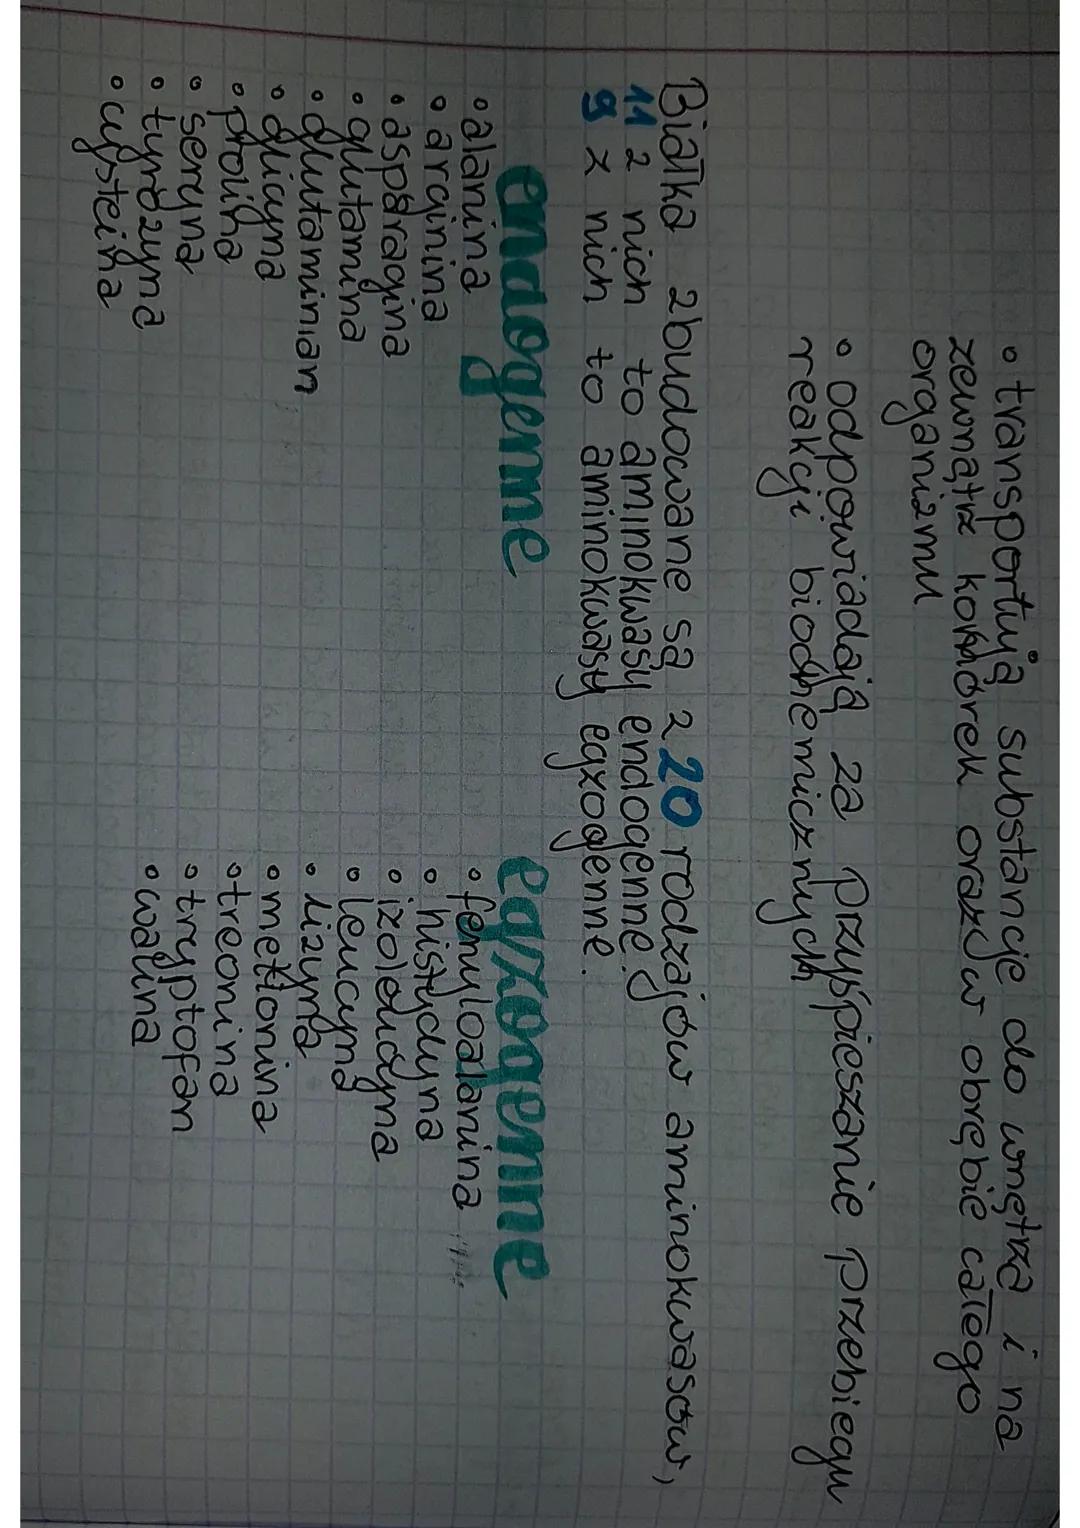 • transportują substancje do wnętrza i na
zewnątrz komórek oraz w obrębie całego
organizmu
• odpowiadają za przyśpieszanie przebiegu
reakcji biochemicznych
Białka zbudowane są z 20 rodzajów aminokwasów,
11 z nich to aminokwasy endogenne,
9 z nich to aminokwasy egzogenne.
endogenne
• alanina
• arginina
• asparagina
• glutamina
• glutaminian
• glicyna
• prolina
• seryna
• tyrozyna
• cysteina
egzogenne
• fenyloalanina
• histydyna
• izoleucyna
• leucyna
• lizyna
• metionina
• treonina
• tryptofan
• walina